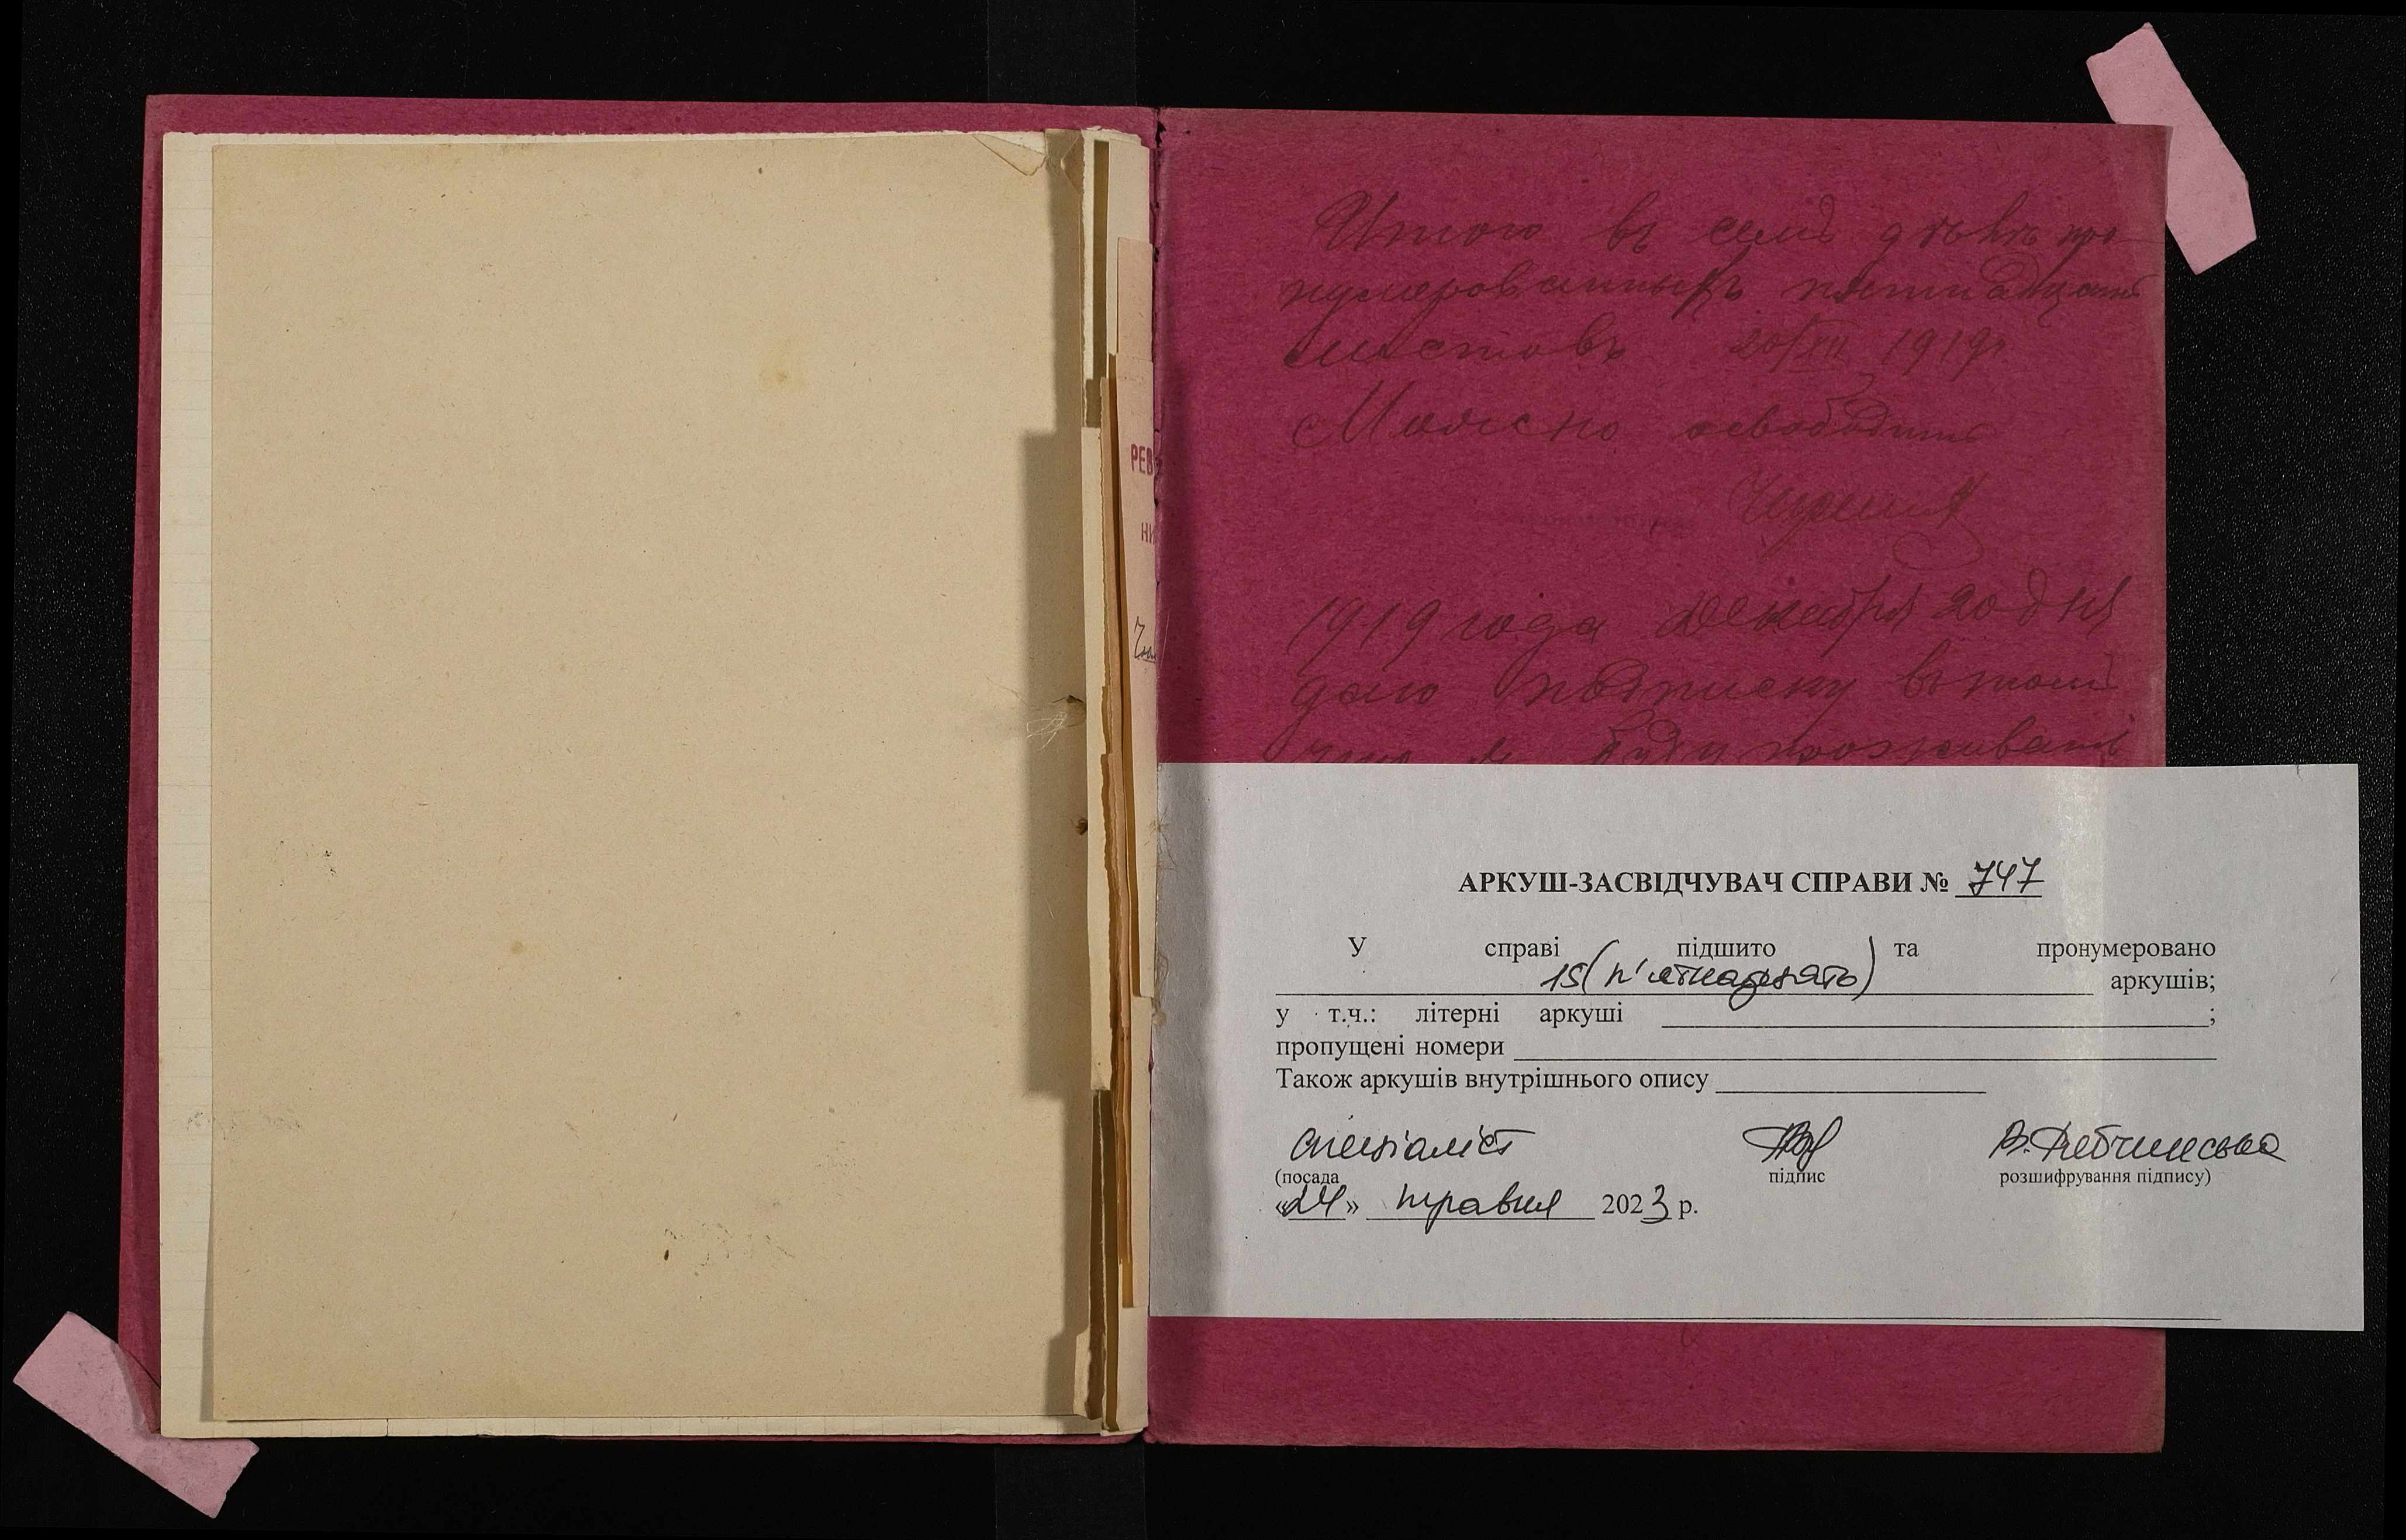 РЕВ
НИ
Итого въ семъ дѣлѣ про-
нумерованныхъ пятнадцать
листовъ 20/XII 1919г
Можно освободить
1919 года Декабря 20 дня
даю подписку въ томъ
что я буду проживать
АРКУШ-ЗАСВІДЧУВАЧ СПРАВИ № 747
У справі підшито та пронумеровано
15 (п'ятнадцять) аркушів;
у т.ч.: літерні аркуші ;
пропущені номери
Також аркушів внутрішнього опису
спеціаліст
(посада підпис розшифрування підпису)
«24» травня 2023 р.